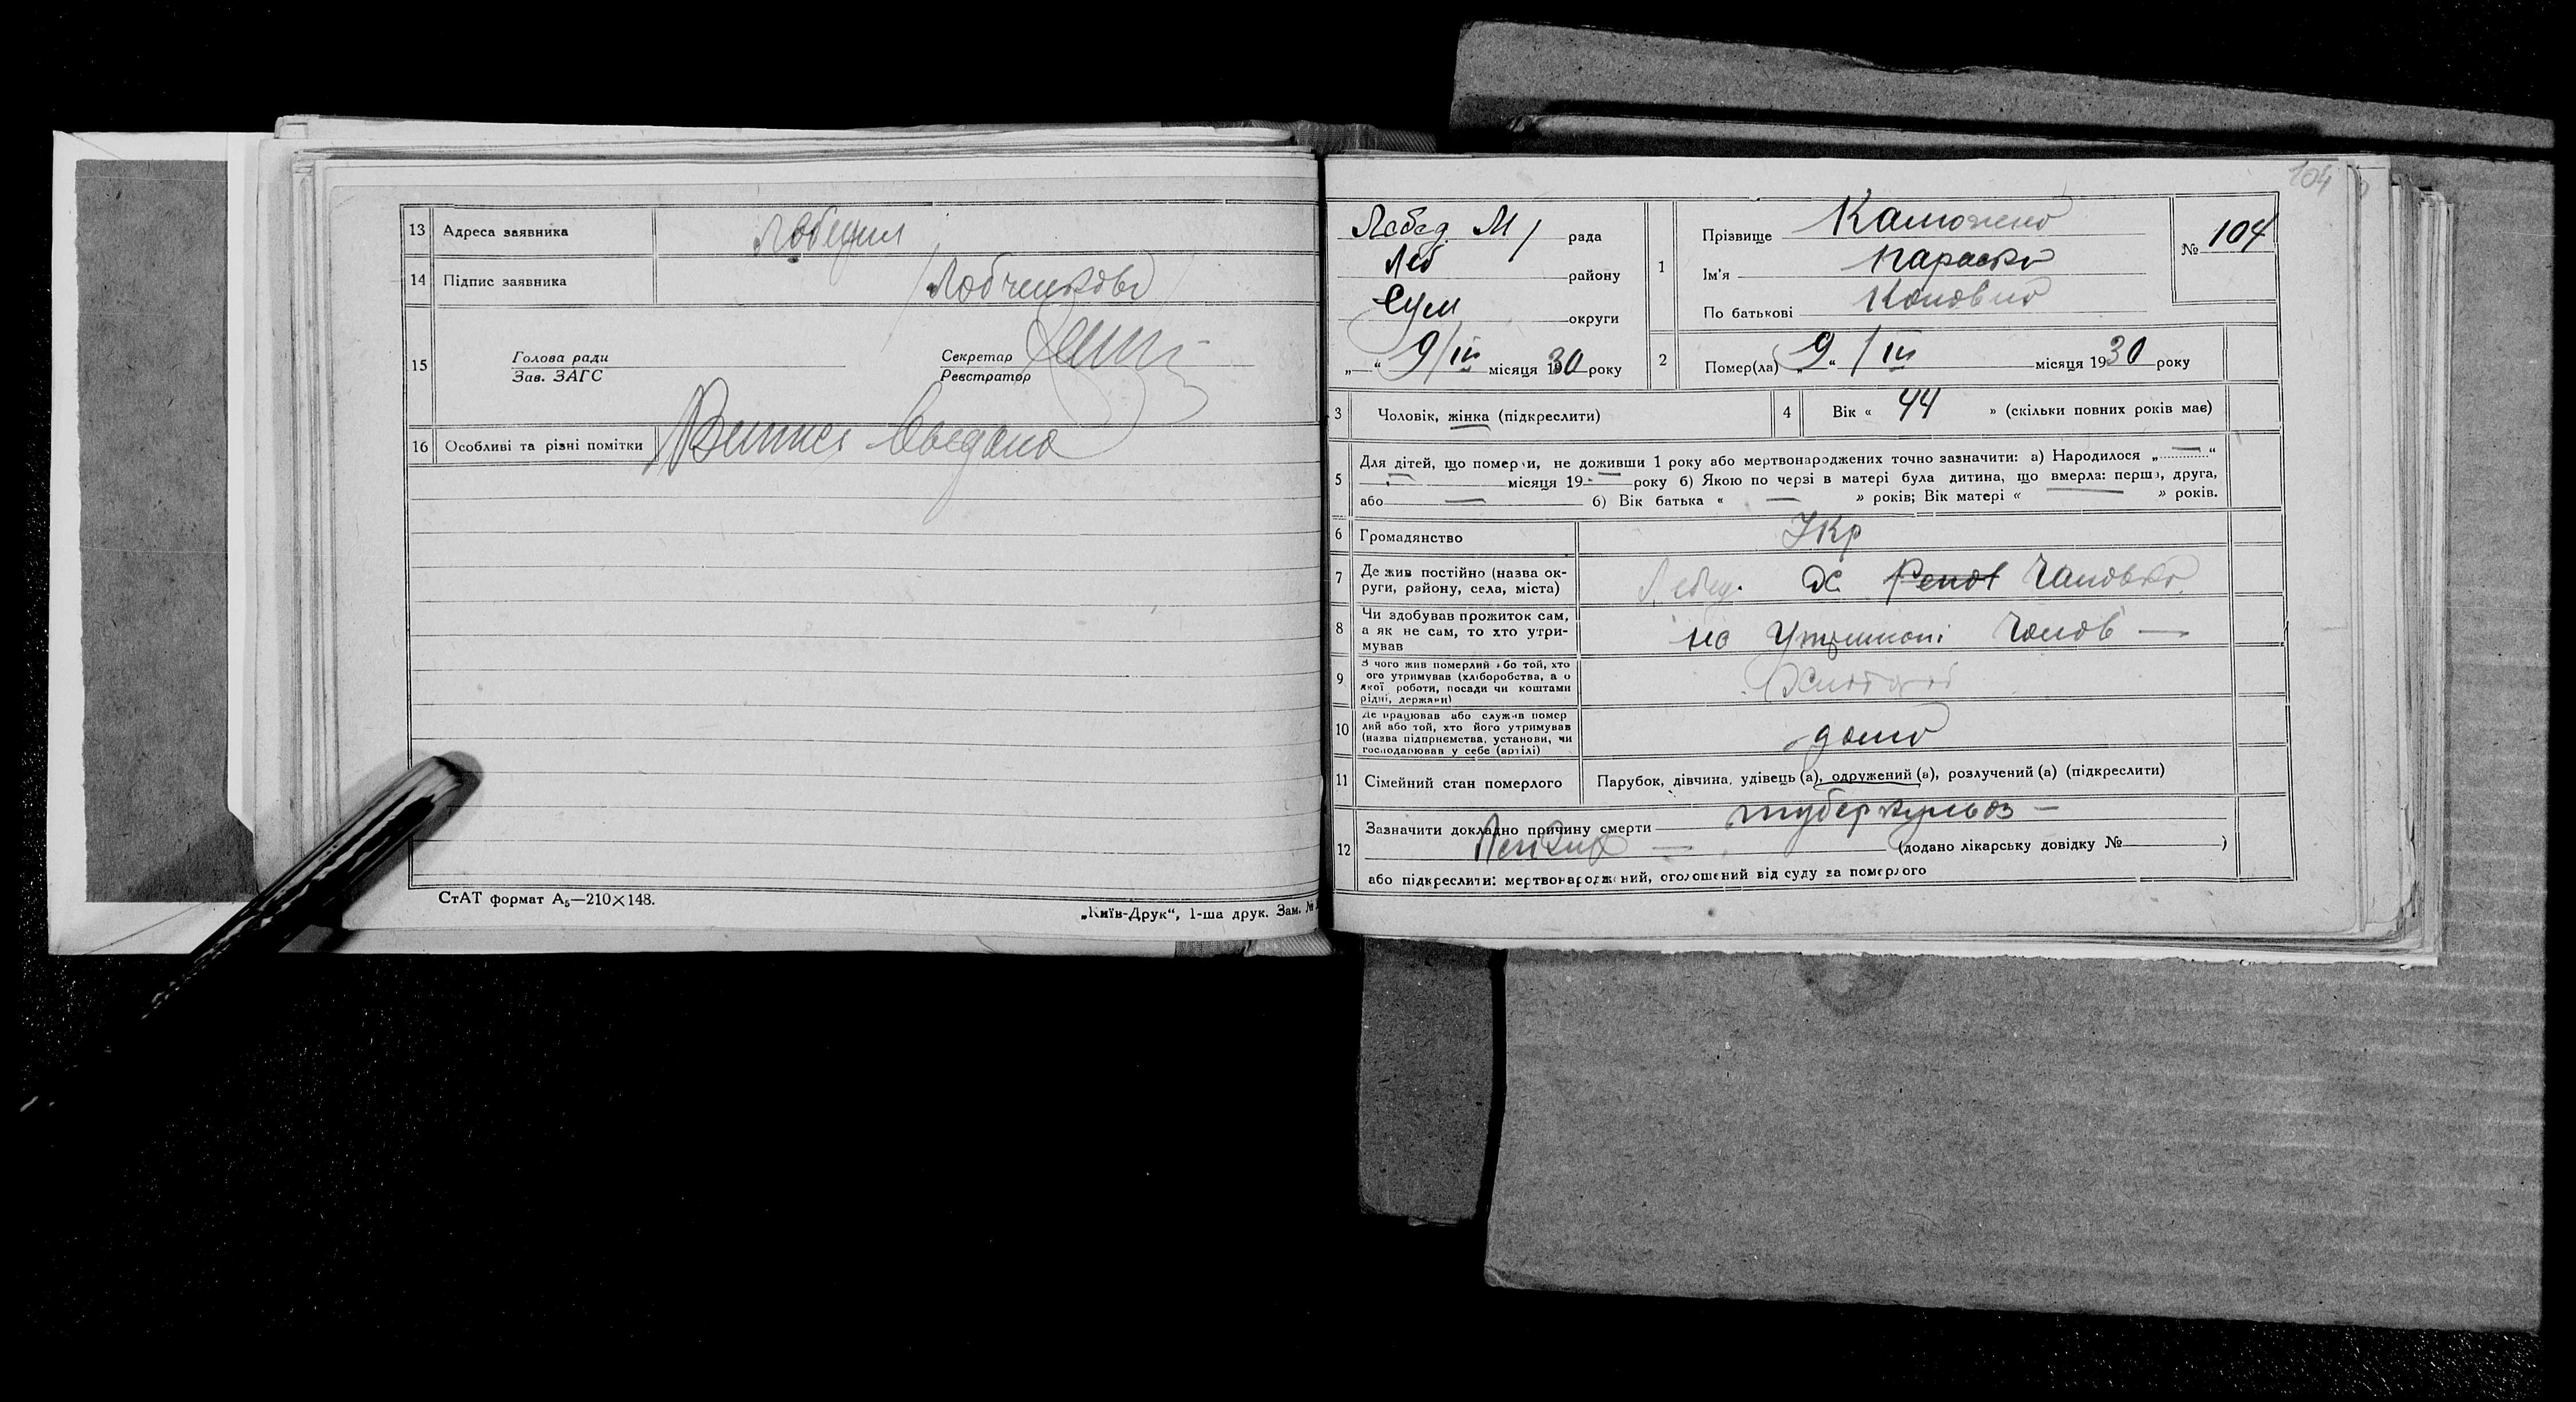 13 Адреса заявника
14 Підпис заявника
15 Голова ради
Зав. ЗАГС
Секретар
Реєстратор
16 Особливі та різні помітки
СтАТ формат А5—210×148.
„Київ-Друк“, 1-ша друк. Зам. №
104
Лебед. М/ рада
Леб району
Сум округи
„ “ 9/III місяця 1930 року
1 Прізвище
Ім'я Параска
По батькові
№ 104
2 Помер(ла) „9“ / III місяця 1930 року
3 Чоловік, жінка (підкреслити)
4 Вік « 44 » (скільки повних років має)
5 Для дітей, що померли, не доживши 1 року або мертвонароджених точно зазначити: а) Народилося „ — “
— місяця 19 - року б) Якою по черзі в матері була дитина, що вмерла: перша, друга,
або — б) Вік батька « — » років; Вік матері « — » років.
6 Громадянство Укр
7 Де жив постійно (назва ок-
руги, району, села, міста) Лебед. Х.
8 Чи здобував прожиток сам,
а як не сам, то хто утри-
мував на утриманні Чолов —
9 З чого жив померлий або той, хто
ого утримував (хліборобства, а о
якої роботи, посади чи коштами
рідні, держави)
10 Де працював або служив помер
лий або той, хто його утримував
(назва підприємства, установи, чи
господарював у себе (артілі) дома
11 Сімейний стан померлого Парубок, дівчина, удівець (а), одружений (а), розлучений (а) (підкреслити)
12 Зазначити докладно причину смерти туберкульоз —
— (додано лікарську довідку № )
або підкреслити: мертвонароджений, оголошений від суду за померлого